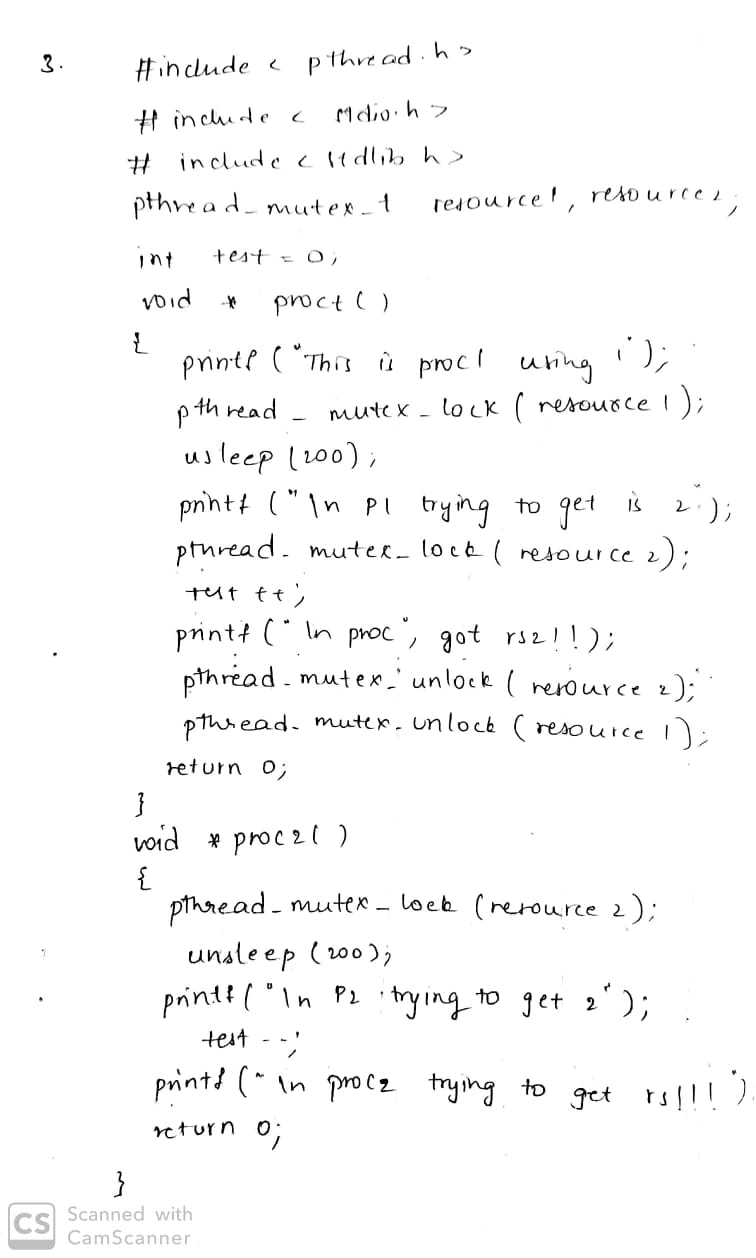 3. #include < pthread.h>
# include < stdio.h >
# include < stdlib h>
pthread_mutex_t resource1, resource2;
int test = 0;
void * proc1 ( )
{
printf ("This is proc1 using 1");
pthread _ mutex _ lock ( resource 1 );
usleep (200);
printf ("\n P1 trying to get is 2");
pthread_ mutex_ lock ( resource 2);
test ++;
printf (" \n proc", got rs2!!);
pthread_mutex_ unlock ( resource 2);
pthread_ mutex_ unlock ( resource 1);
return 0;
}
void * proc2( )
{
pthread_mutex_ lock (resource 2);
unsleep (200);
printf ("\n P2 trying to get 2");
test --;
printf (" \n proc2 trying to get rs1!! ")
return 0;
}
CS Scanned with
CamScanner